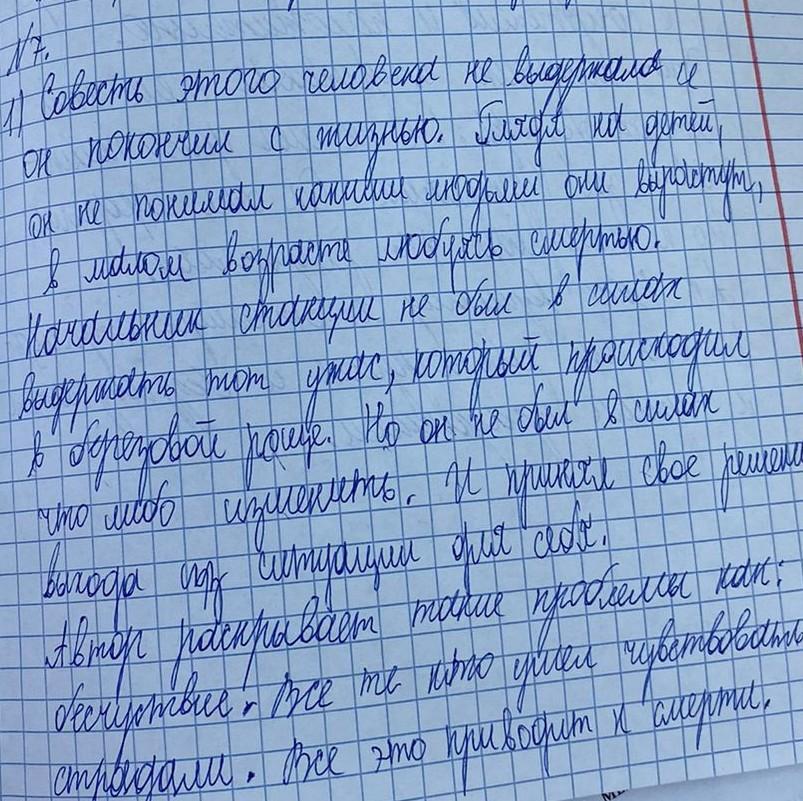 N7.
1) Совесть этого человека не выдержала и
он покончил с жизнью. Глядя на детей,
он не понимал какими людьми они вырастут,
в малом возрасте любуясь смертью.
Начальник станции не был в силах
выдержать тот ужас, который происходил
в березовой роще. Но он не был в силах
что либо изменить. И принял свое решени
выхода из ситуации для себя.
Автор раскрывает такие проблемы как:
бесчуствие. Все те кто умел чувствовать
страдали. Все это приводит к смерти.